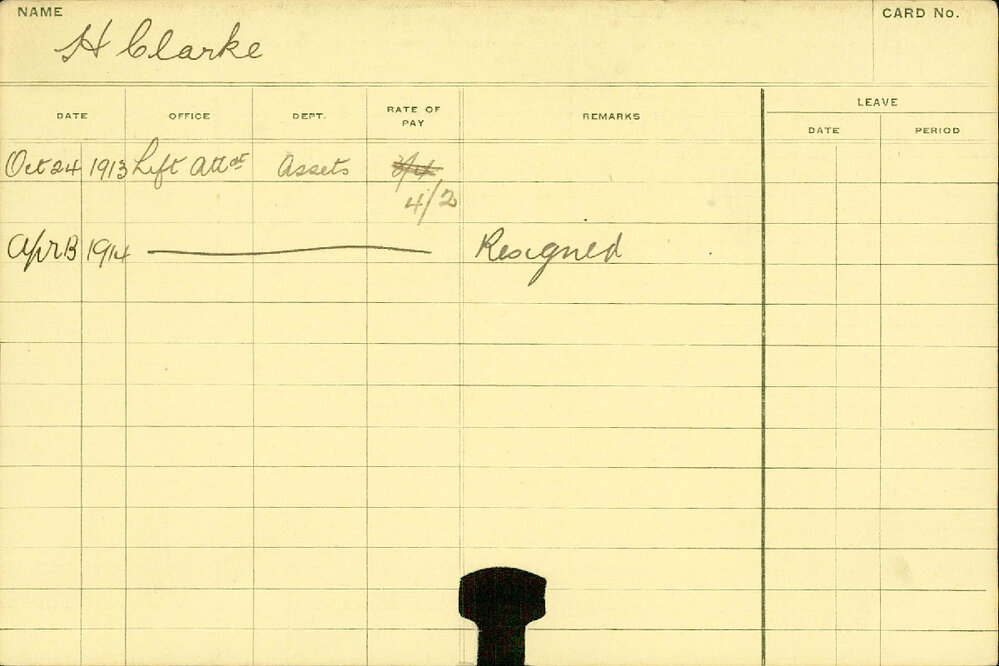 NAME
CARD No.
H Clarke
DATE OFFICE DEPT. RATE OF PAY REMARKS LEAVE
DATE PERIOD
Oct 24 1913 Lift Attdt Assets
4/2
Apr 13 1914 Resigned